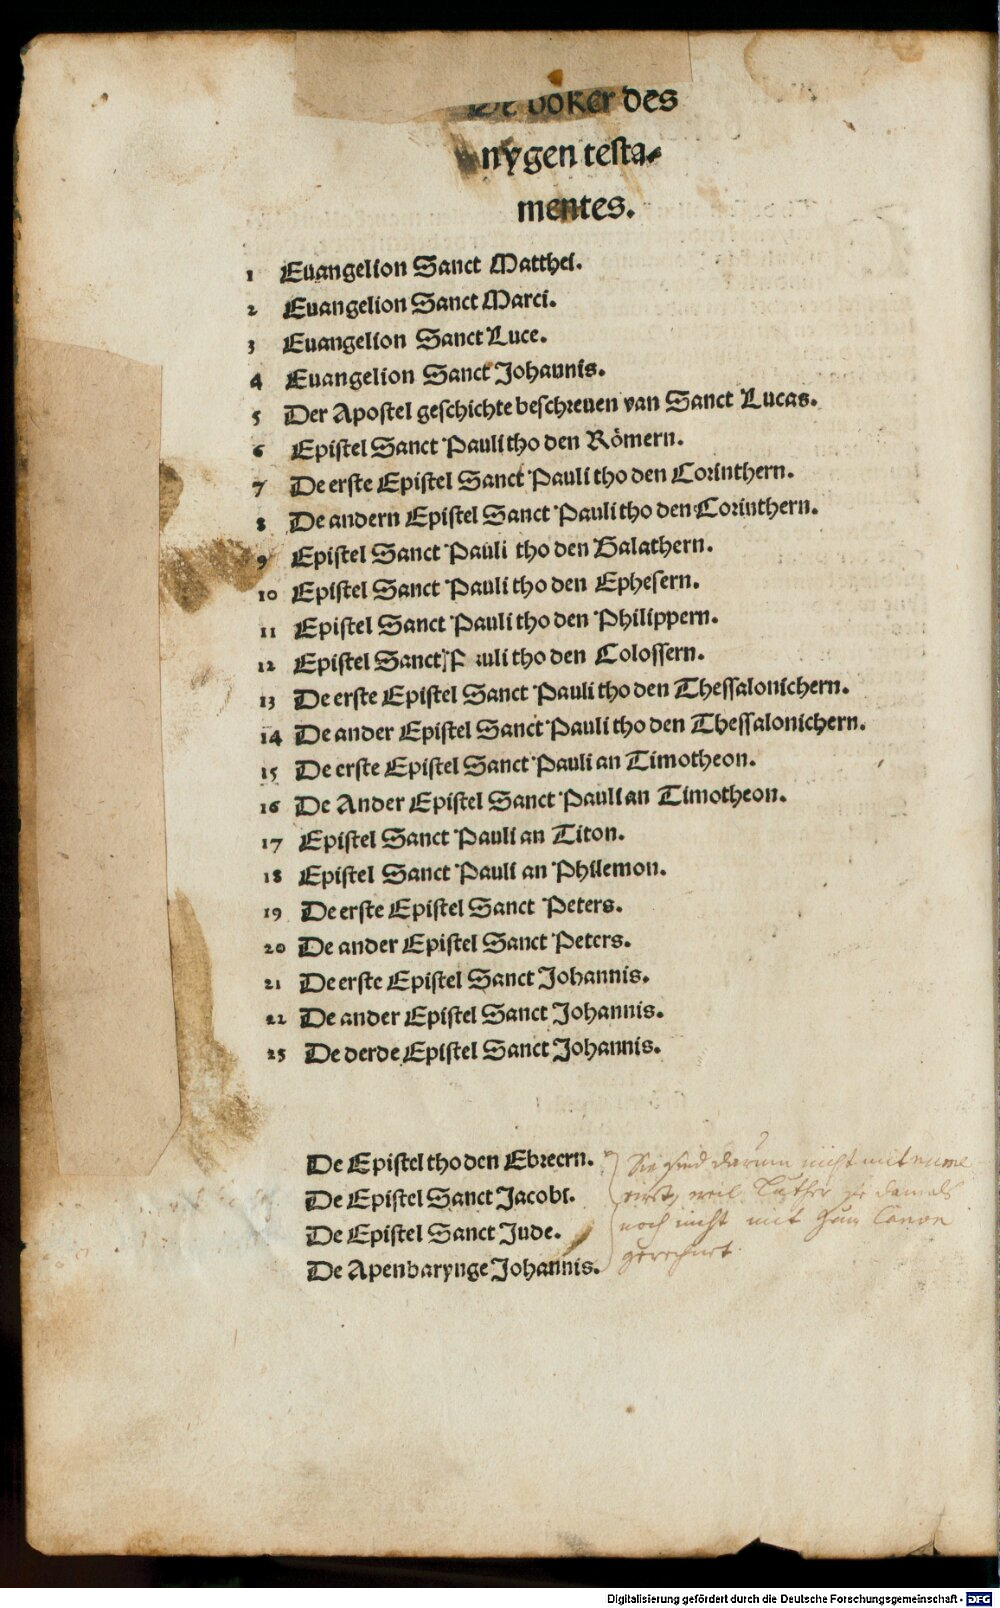 De boker des
nygen testa-
mentes.
1 Euangelion Sanct Matthei.
2 Euangelion Sanct Marci.
3 Euangelion Sanct Luce.
4 Euangelion Sanct Johannis.
5 Der Apostel geschichte beschreuen van Sanct Lucas.
6 Epistel Sanct Pauli tho den Römern.
7 De erste Epistel Sanct Pauli tho den Corinthern.
8 De andern Epistel Sanct Pauli tho den Corinthern.
9 Epistel Sanct Pauli tho den Galathern.
10 Epistel Sanct Pauli tho den Ephesern.
11 Epistel Sanct Pauli tho den Philippern.
12 Epistel Sanct Pauli tho den Colossern.
13 De erste Epistel Sanct Pauli tho den Thessalonichern.
14 De ander Epistel Sanct Pauli tho den Thessalonichern.
15 De erste Epistel Sanct Pauli an Timotheon.
16 De Ander Epistel Sanct Pauli an Timotheon.
17 Epistel Sanct Pauli an Titon.
18 Epistel Sanct Pauli an Philemon.
19 De erste Epistel Sanct Peters.
20 De ander Epistel Sanct Peters.
21 De erste Epistel Sanct Johannis.
22 De ander Epistel Sanct Johannis.
23 De derde Epistel Sanct Johannis.
De Epistel tho den Ebreern.
De Epistel Sanct Jacobi.
De Epistel Sanct Jude.
De Apenbarynge Johannis.
Sie sind darum nicht mit nume
rirt, weil Luther sie damals
noch nicht mit zum Canon
gerechnet.
Digitalisierung gefördert durch die Deutsche Forschungsgemeinschaft - DFG